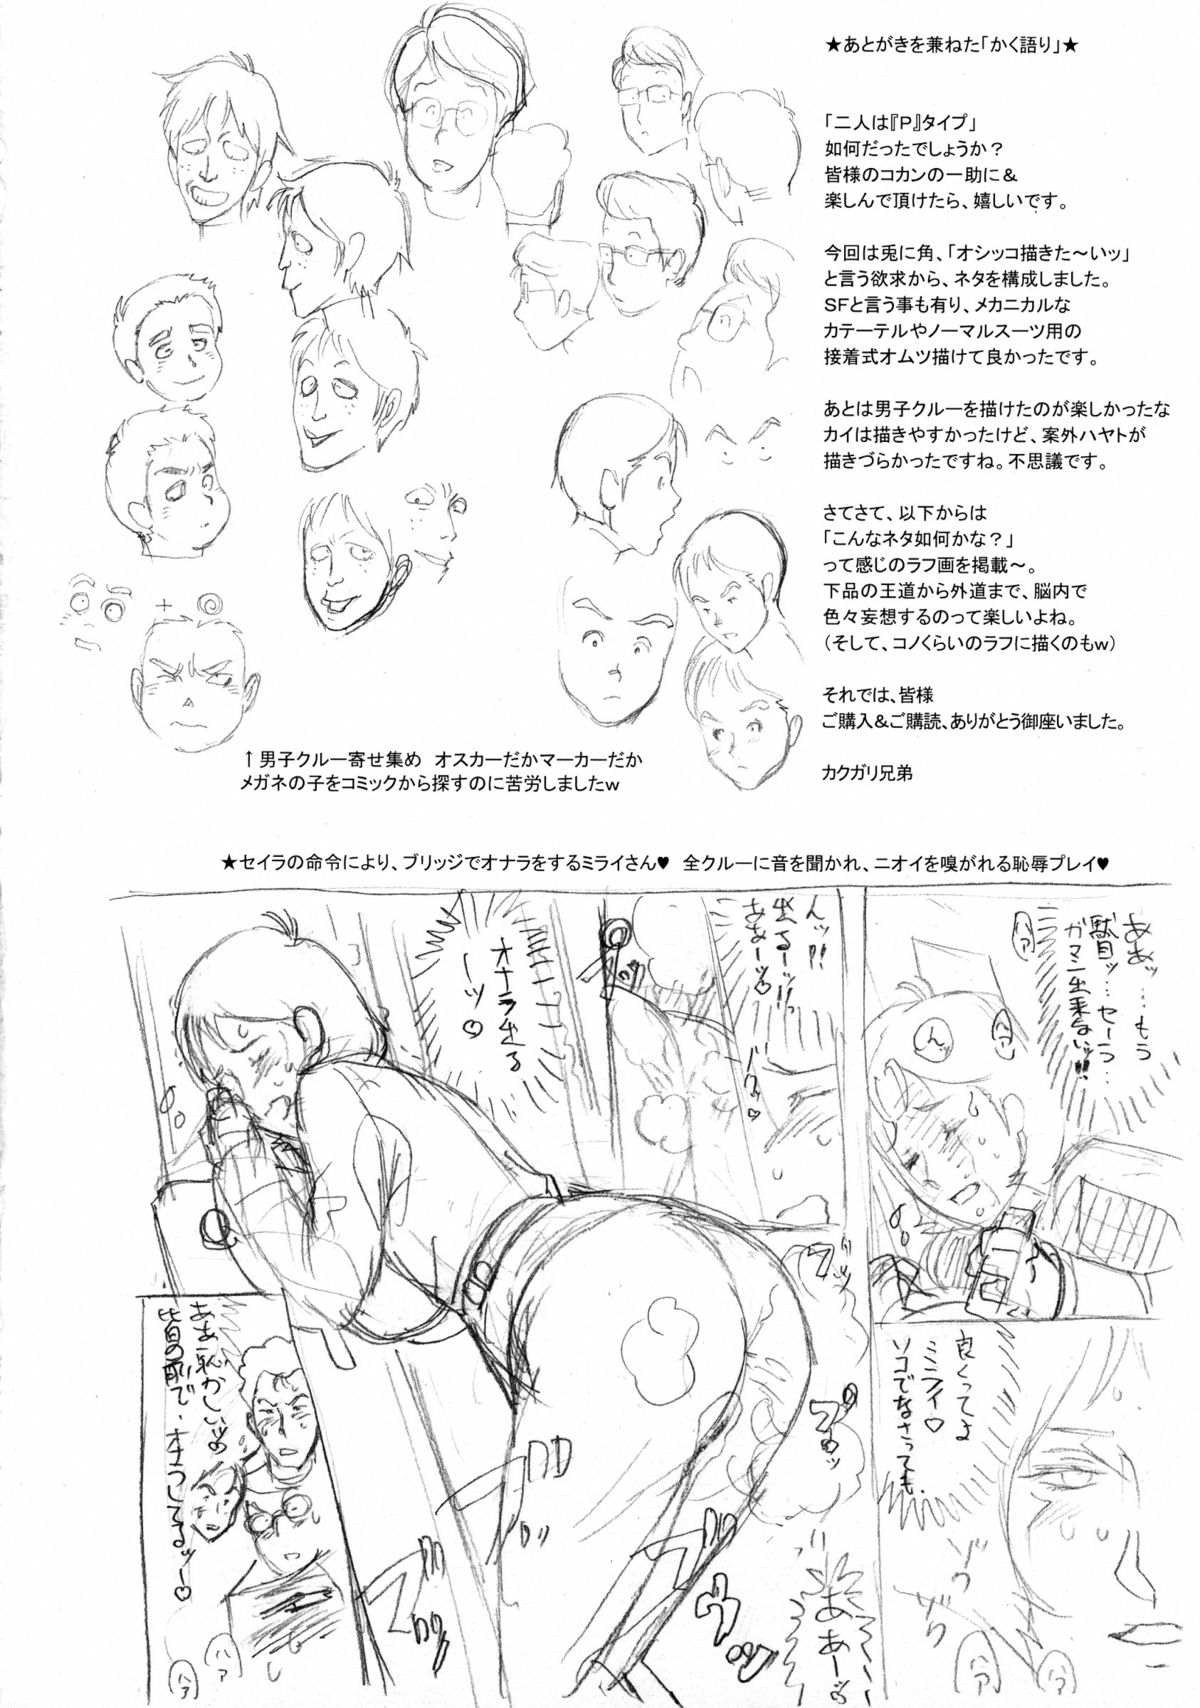 ★あとがきを兼ねた「かく語り」★
「二人は『P』タイプ」
如何だったでしょうか？
皆様のコカンの一助に＆
楽しんで頂けたら、嬉しいです。
今回は兎に角、「オシッコ描きた～いッ」
と言う欲求から、ネタを構成しました。
SFと言う事も有り、メカニカルな
カテーテルやノーマルスーツ用の
接着式オムツ描けて良かったです。
あとは男子クルーを描けたのが楽しかったな
カイは描きやすかったけど、案外ハヤトが
描きづらかったですね。不思議です。
さてさて、以下からは
「こんなネタ如何かな？」
って感じのラフ画を掲載～。
下品の王道から外道まで、脳内で
色々妄想するのって楽しいよね。
（そして、コノくらいのラフに描くのもw）
それでは、皆様
ご購入＆ご購読、ありがとう御座いました。
カクガリ兄弟
↑男子クルー寄せ集め　オスカーだかマーカーだか
メガネの子をコミックから探すのに苦労しましたw
★セイラの命令により、ブリッジでオナラをするミライさん♥　全クルーに音を聞かれ、ニオイを嗅がれる恥辱プレイ♥
ああッ…もう
駄目ッ…セーラ…
ガマン出来ないッ!!
ハァ
ん
ハァ
んッ!!
出るーッ!!
ああーッ♡
オナラ出る
ーッ♡
良くってよ
ミライ♡
ソコでなさっても
ああ恥かしいッ
皆の前で、オナラしてるッー♡
ああーッ
ハァ
ハァ
ハァ
ハァ